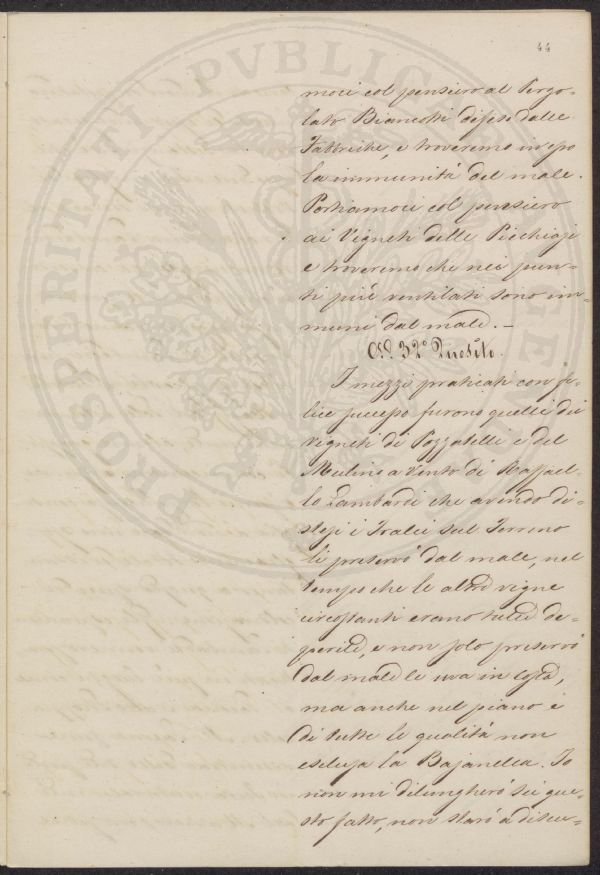 44
moci col pensiero al Pergo-
lato Biancotti difeso dalle
Fabbriche, e troveremo in esso
la immunità del male.
Portiamoci col pensiero
ai Vigneti delle Picchiaje
e troveremo che nei pun-
ti più ventilati sono im-
muni dal male. -
Al 32º Quesito.
I mezzi praticati con fe-
lice successo furono quelli dei
vigneti di Pozzatelli e del
Mulino a Vento di Raffael-
lo Lambardi che avendo di-
stesi i Tralci sul Terreno
li preservò dal male, nel
tempo che le altre vigne
circostanti erano tutte de-
perite, e non solo preservò
dal male le uva in costa,
ma anche nel piano e
di tutte le qualità non
esclusa la Bajanella. Io
non mi dilungherò sù que-
sto fatto, non starò a discu-
PROSPERITATI PVBLICAE AVGENDAE